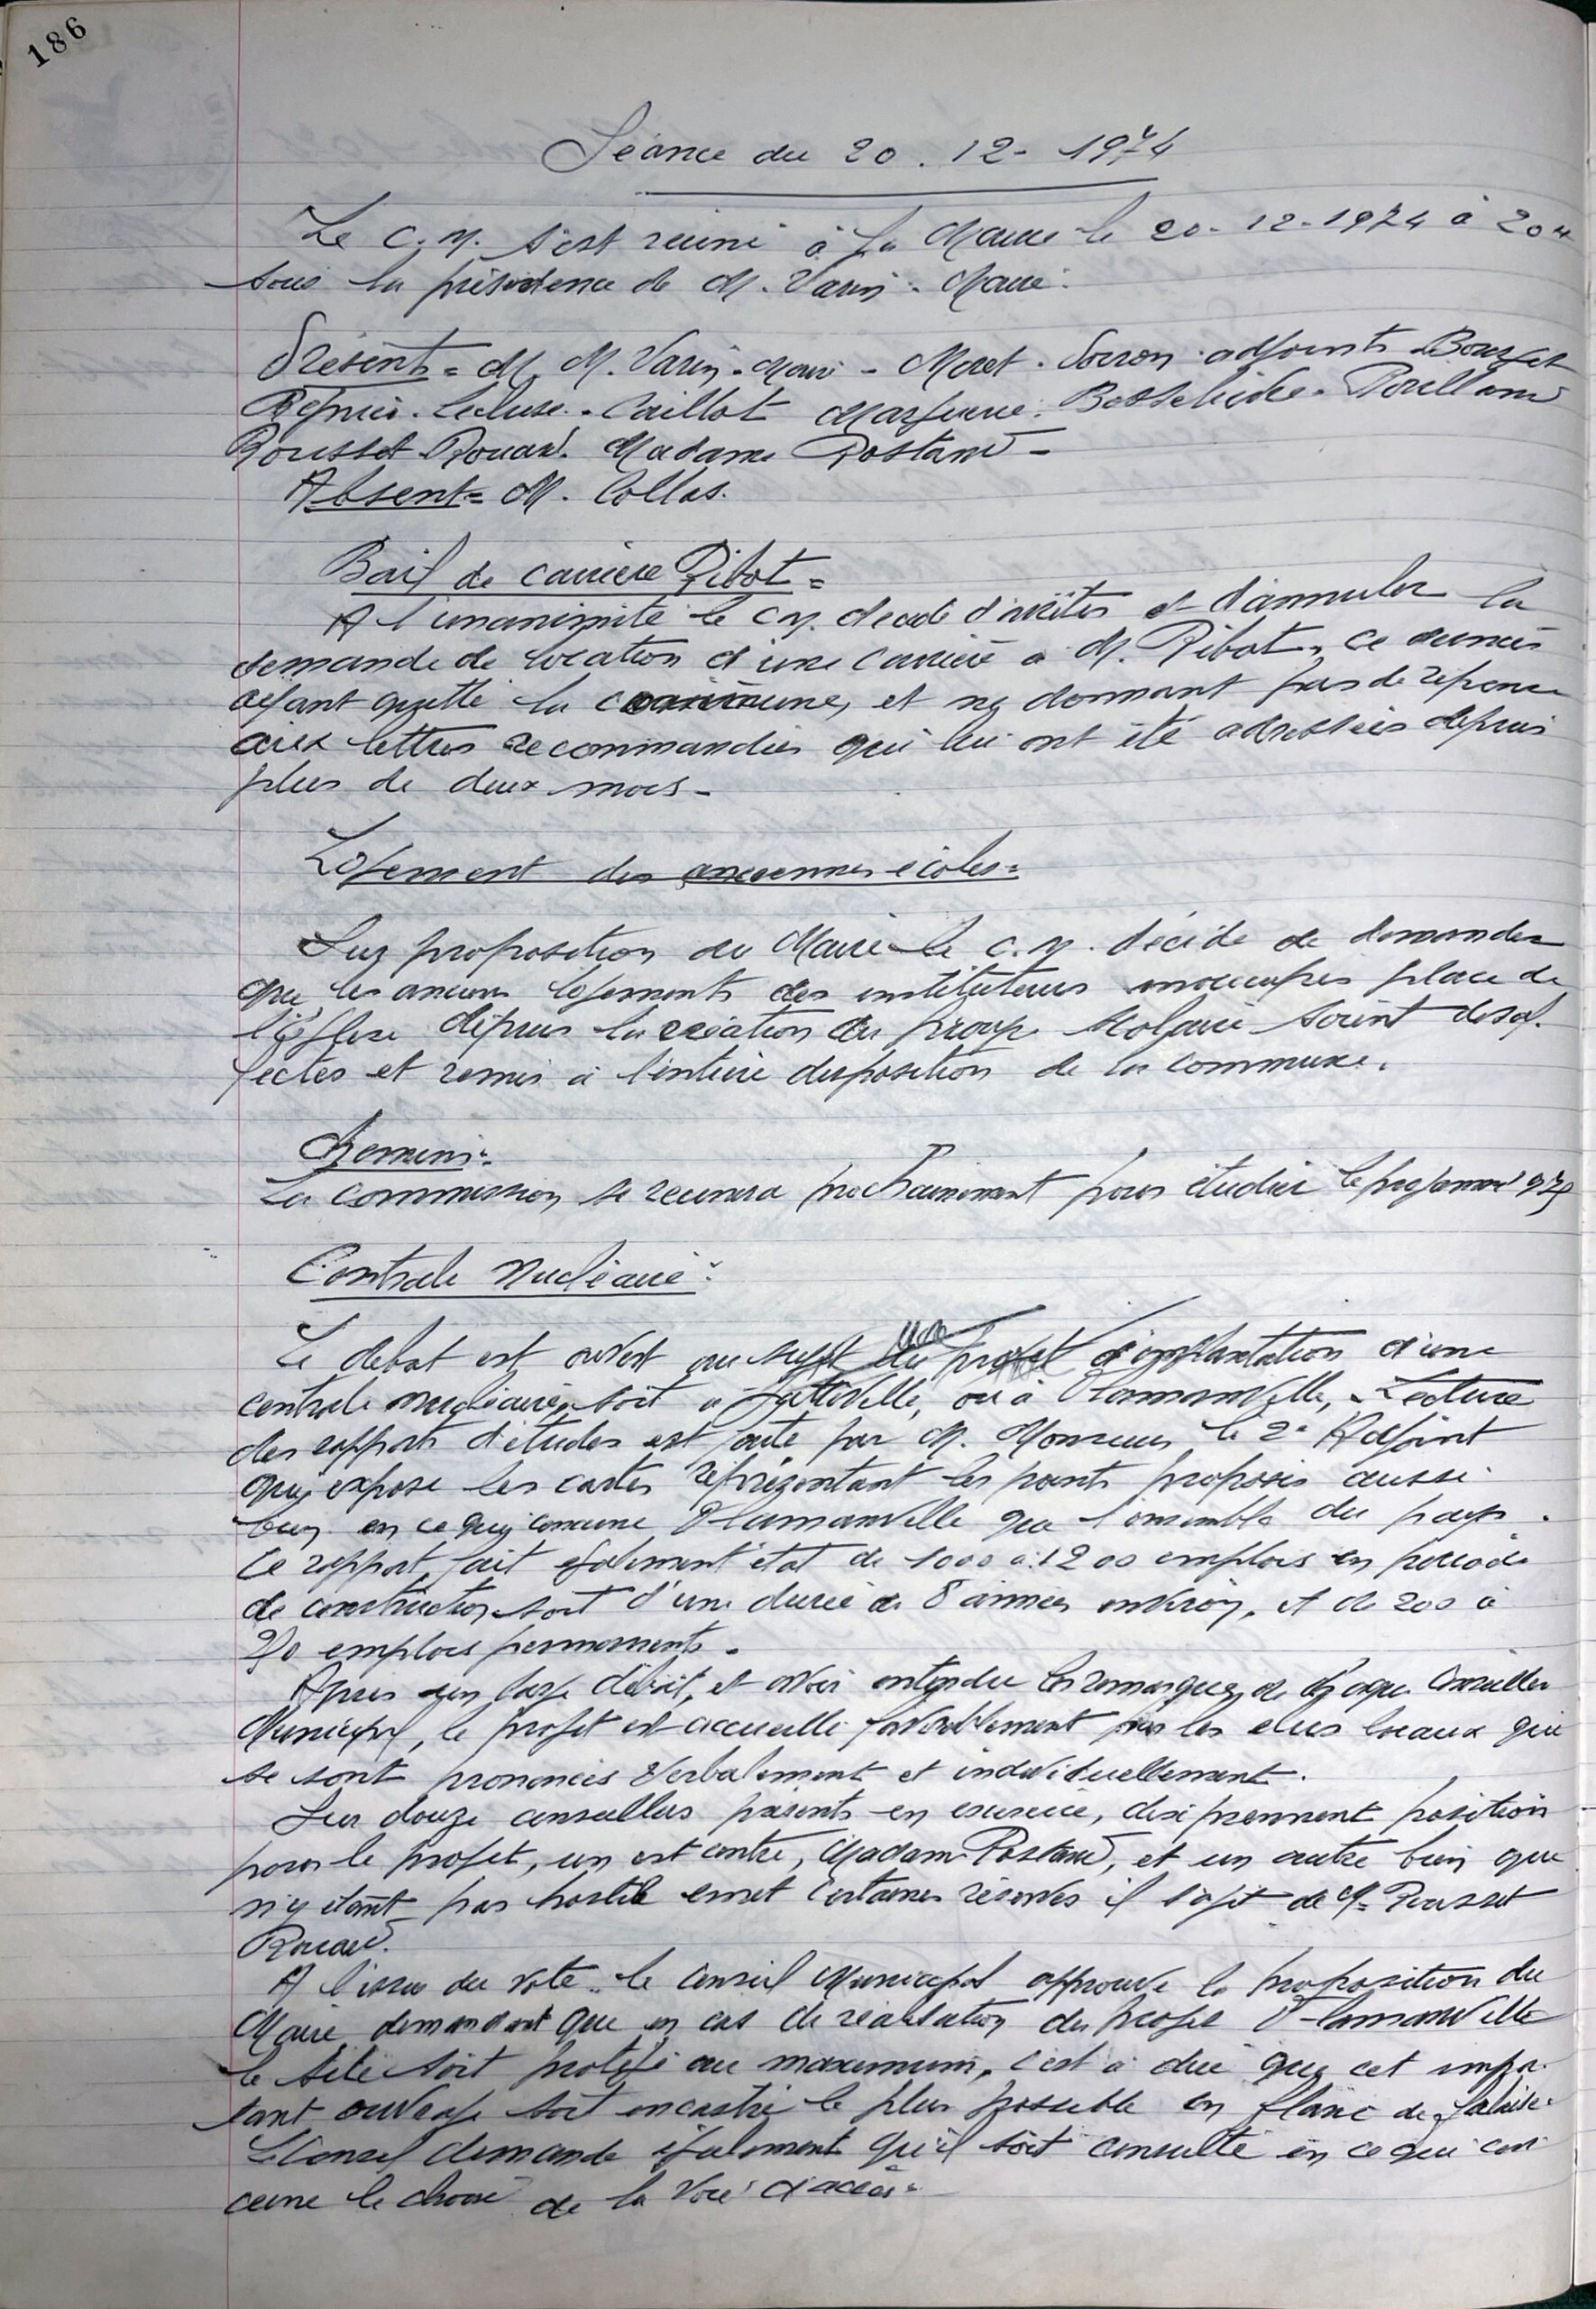 186
Séance du 20.12-1974
Le C.M. s'est réuni à la Mairie le 20-12-1974 à 20H
sous la présidence de M. Varin. Maire.
Présents = M.M. Varin. Maire - Moret. Sorron adjoints
Lecluse. Caillot Bosschicke
Rousset Rouard. Madame Rostand -
Absent = M. Collas.
Bail de carrière Ribot =
A l'unanimité le C.M. décide d'arrêter et d'annuler la
demande de location d'une carrière à M. Ribot, ce dernier
ayant quitté la commune, et ne donnant pas de réponse
aux lettres recommandées qui lui ont été adressées depuis
plus de deux mois -
Logement des anciennes écoles =
Sur proposition du Maire le C.M. décide de demander
que les anciens logements des instituteurs inoccupés place de
l'Eglise depuis la création du groupe scolaire soient desaf-
fectés et remis à l'entière disposition de la commune.
Chemins :
La commission se réunira prochainement pour étudier le programme 975
Centrale Nucléaire :
Le débat est ouvert au sujet du projet d'implantation d'une
centrale nucléaire, soit à Gatteville, ou à Flamanville, - Lecture
des rapports d'études est faite par M. le 2e Adjoint
qui expose les cartes représentant les points proposés aussi
bien en ce qui concerne Flamanville que l'ensemble du pays.
Ce rapport fait également état de 1000 à 1200 emplois en période
de construction soit d'une durée de 8 années environ, et de 200 à
emplois permanents -
Après un large débat, et avoir entendu les remarques de chaque Conseiller
Municipal, le projet est accueilli favorablement par les élus locaux qui
se sont prononcés verbalement et individuellement.
Sur douze conseillers présents en exercice, dix prennent position
pour le projet, un est contre, Madame Rostand, et un autre bien que
n'y étant pas hostile émet certaines réserves il s'agit de M. Rousset
Rouard.
A l'issue du vote le Conseil Municipal approuve la proposition du
Maire demandant que en cas de réalisation du projet Flamanville
le site soit protégé au maximum, c'est à dire que cet impor-
tant ouvrage soit encastré le plus possible en flanc de falaise.
Le Conseil demande également qu'il soit consulté en ce qui con
cerne le choix de la voie d'accès =